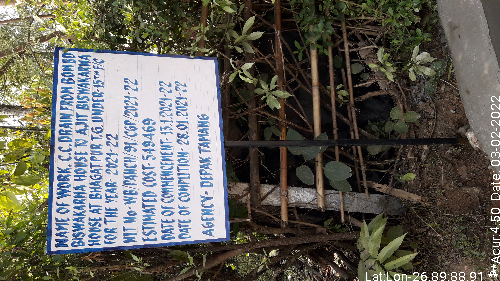 NAME OF WORK. C.C. DRAIN FROM GOBINDO
BISWAKARMA HOUSE TO AJIT BISWAKARMA
HOUSE AT BHAGAT PUR T.G. UNDER-15TH FC
FOR THE YEAR-2021-22
NIT No-WB/MANCH/91/CGP/2021-22
ESTIMATED COST-549469
DATE OF COMMENCEMENT-13.1.2021-22
DATE OF COMPLETION-28.01.2021-22
AGENCY-DEPAK TAMANG
Lat:Lon:26.89:88.91